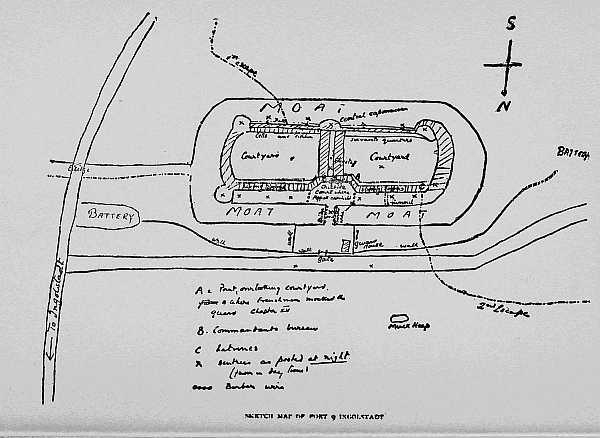 S
N
1st escape
MOAT
central caponniere
cells and kitchen
servants quarters
Courtyard
Courtyard
A
Outside
Court where
Appel
MOAT
MOAT
tunnel
BATTERY
BATTERY
Bridge
wall
wall
wall
wall
guard
House
Gate
2nd Escape
Muck Heap
To Ingolstadt
A = Point overlooking courtyard
from where Frenchman mocked the
guard Chapter
B. Commandants bureau
C Latrines
x Sentries as posted at night
(fewer in day time)
Barbed wire
SKETCH MAP OF FORT 9 INGOLSTADT